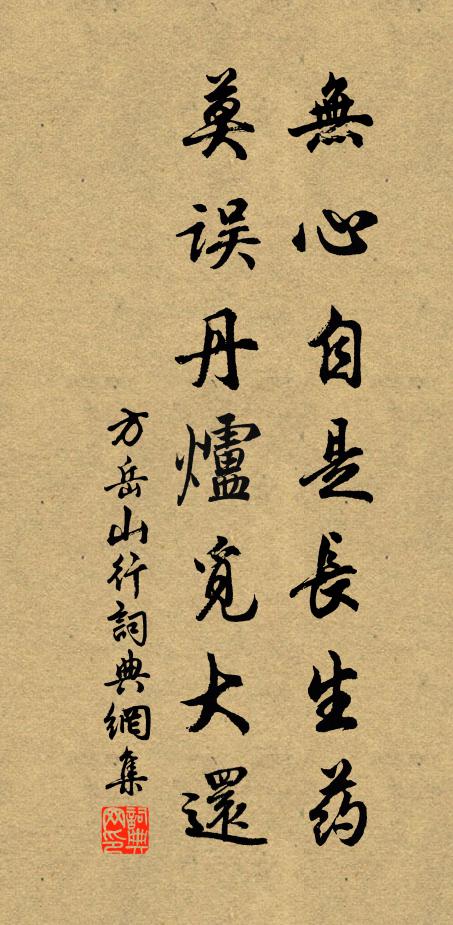 無心自是長生药
莫误丹爐覓大還
方岳山行詞典網集
詞典网印